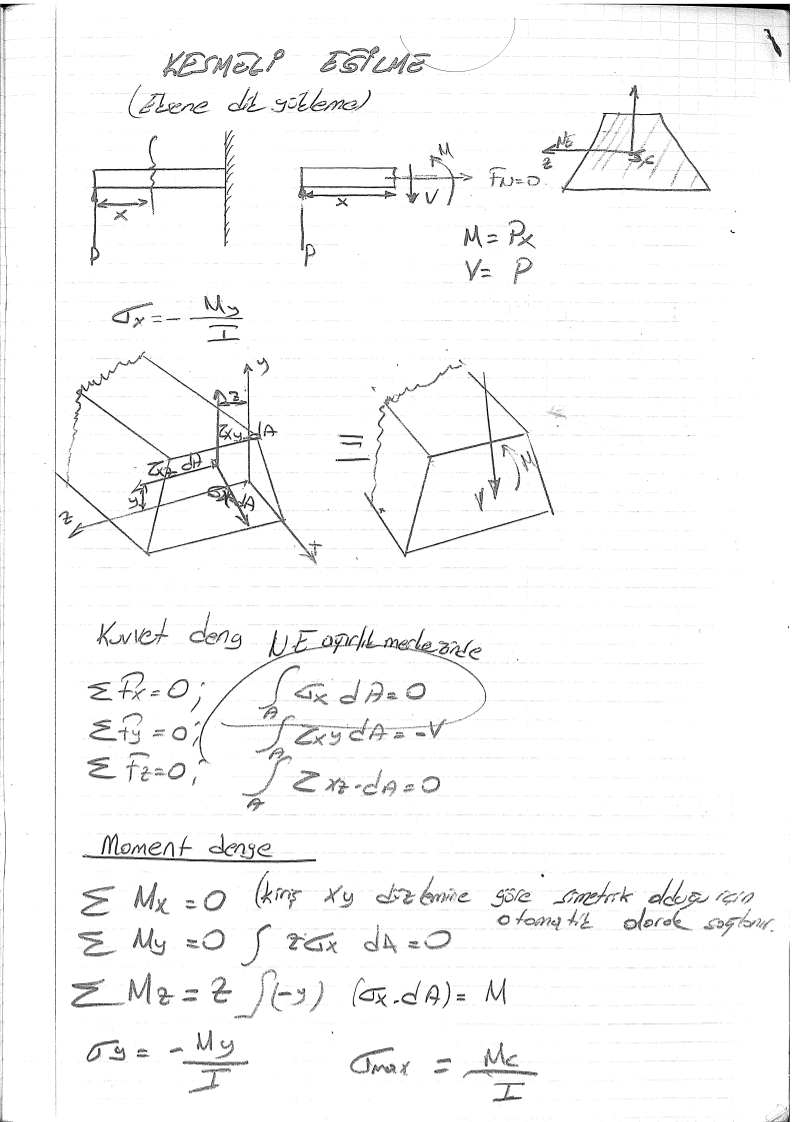 KESMELİ EĞİLME
(Eksene dik yükleme)
x
P
x
P
M
V
FN=0
NE
z
C
M = Px
V = P
σx = - My / I
y
z
τxy dA
τxz dA
y
σx dA
z
=
V
M
Kuvvet deng NE ağırlık merkezinde
Σ Fx = 0 ; ∫A σx dA = 0
Σ Fy = 0 ; ∫A τxy dA = -V
Σ Fz = 0 ; ∫A τxz . dA = 0
Moment denge
Σ Mx = 0 (kiriş xy düzlemine göre simetrik olduğu için
otomatik olarak sağlanır.
Σ My = 0 ∫ zσx dA = 0
Σ Mz = z ∫(-y) (σx . dA) = M
σy = - My / I σmax = Mc / I